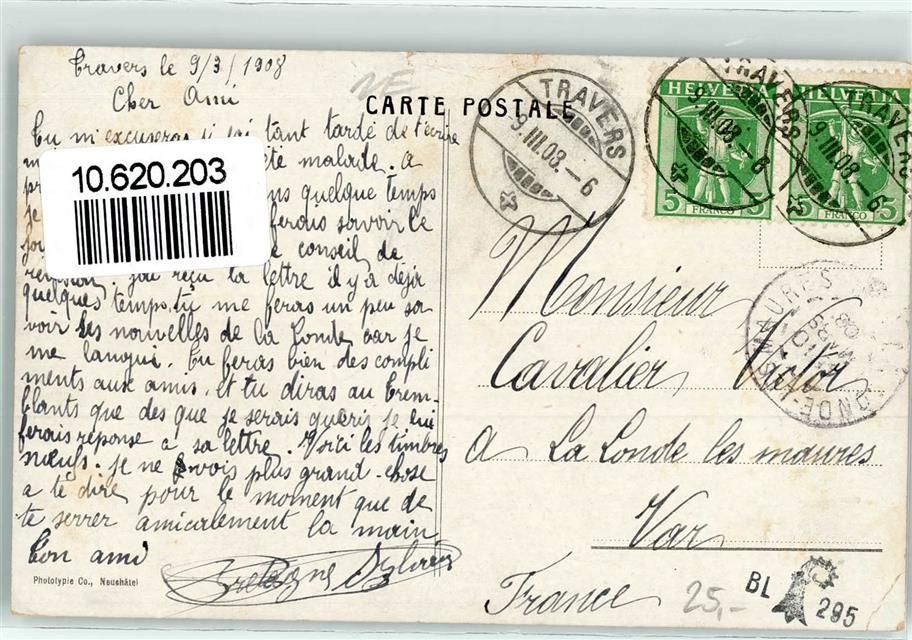 Travers le 9/3/1908
Cher Ami
CARTE POSTALE
Tu m'excuseras si j'ai tant tardé de t'ecrire
été malade. a
quelque temps
je ferais savoir le
conseil de
reçu la lettre il y a déja
quelques temps, tu me feras un peu sa
voir les nouvelles de la Londe car je
me langui. Tu feras bien des compli
ments aux amis, et tu diras au Trem
blants que des que je serais gueris je lui
ferais réponse a sa lettre. Voici les timbres
nœufs. je ne vois plus grand-chose
a te dire pour le moment que de
te serrer amicalement la main
Ton ami
Phototypie Co., Neuchâtel
10.620.203
TRAVERS
9.III.08.–6
HELVETIA
5 FRANCO 5
TRAVERS
9.III.08.–6
HELVETIA
5 FRANCO 5
TRAVERS
9.III.08.–6
Monsieur
Cavalier Victor
a La Londe les maures
Var
France
25,-
BL
295